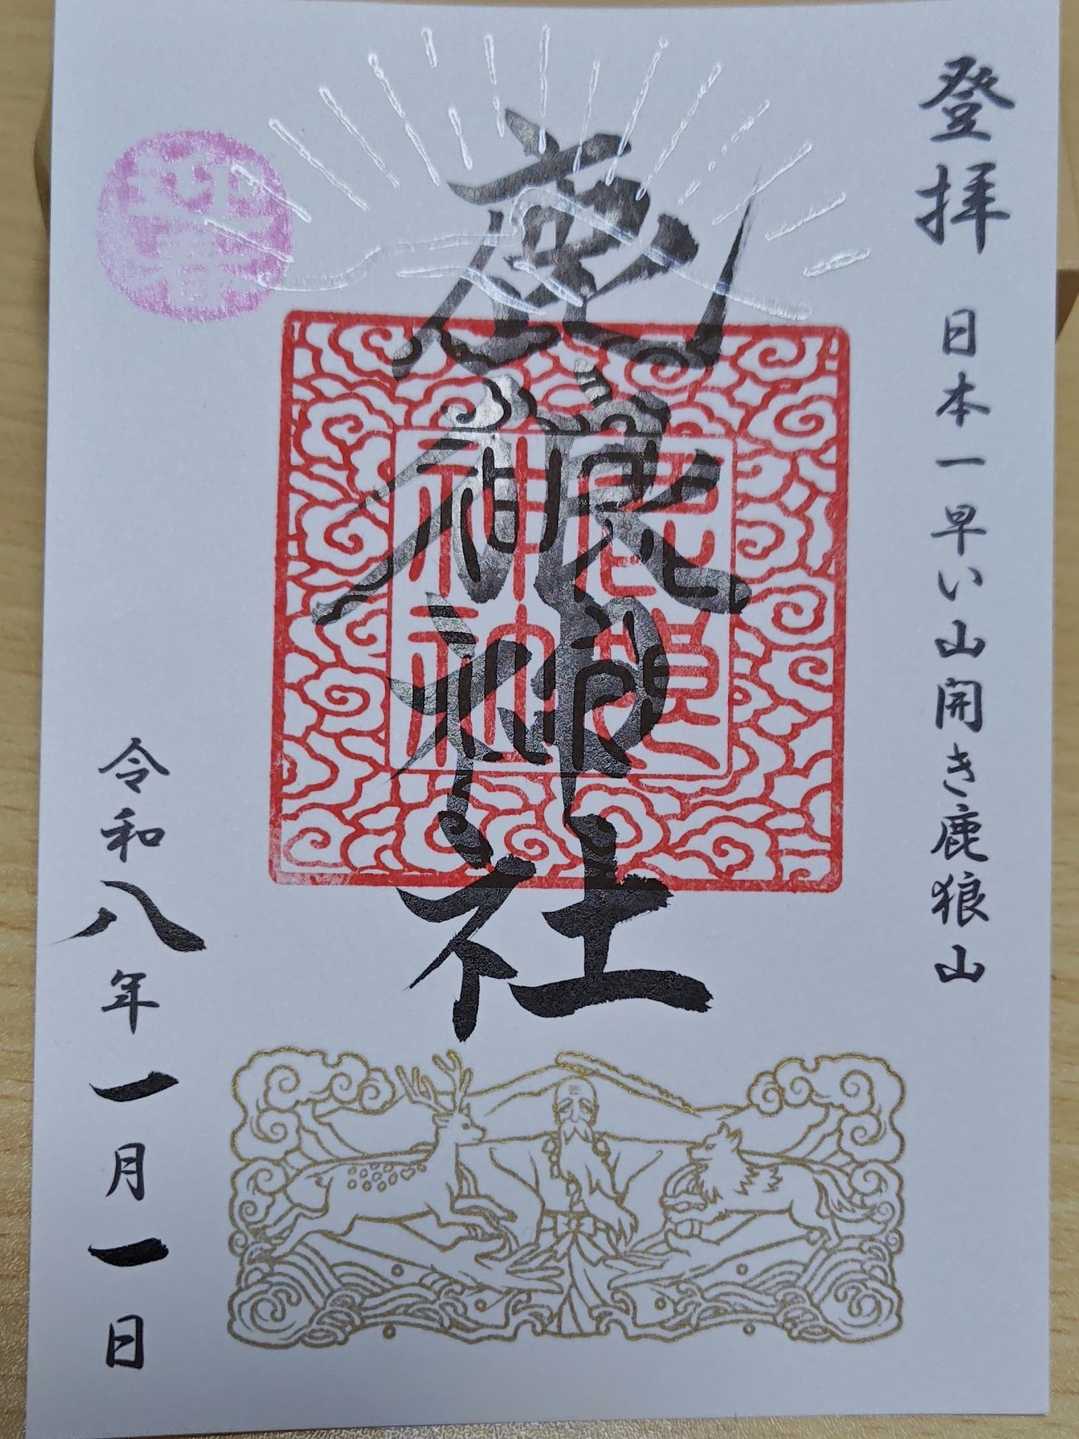 登拝 日本一早い山開き鹿狼山
鹿狼神社
鹿狼
神社
迎春
令和八年一月一日